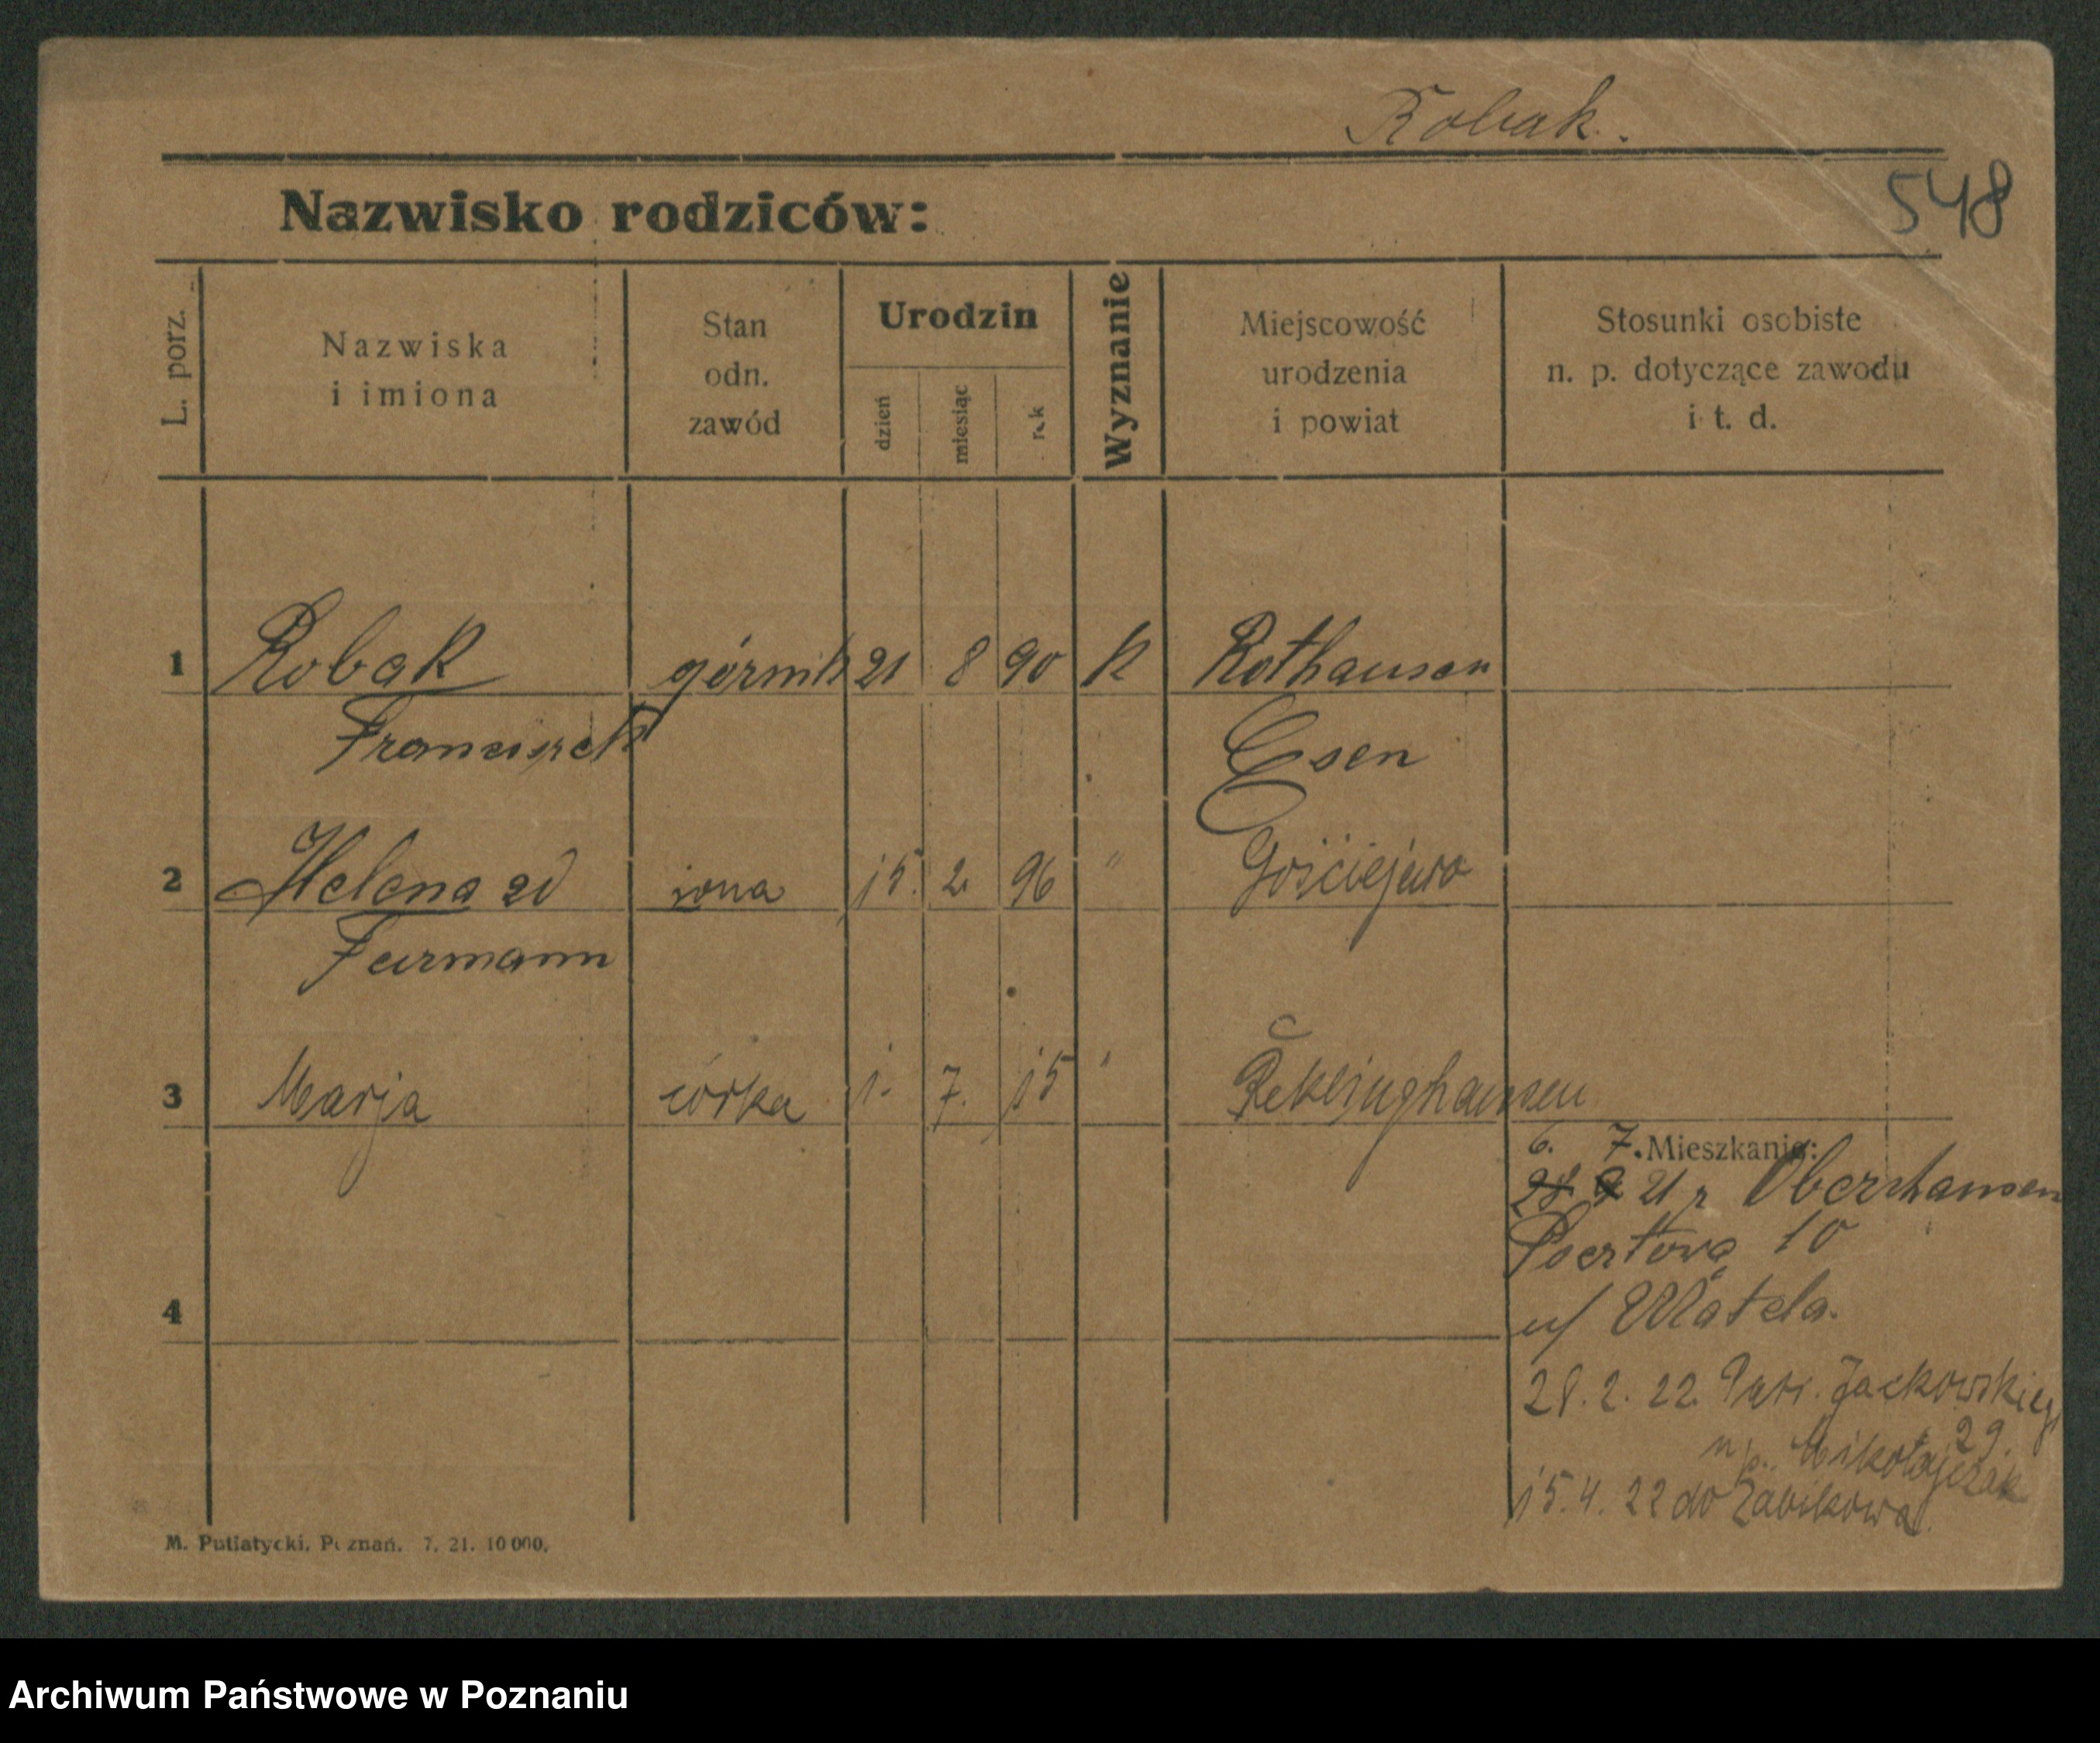 Robak.
548
Nazwisko rodziców:
L. porz.
Nazwiska
i imiona
Stan
odn.
zawód
Urodzin
dzień
miesiąc
rok
Wyznanie
Miejscowość
urodzenia
i powiat
Stosunki osobiste
n. p. dotyczące zawodu
i t. d.
1 Robak górnik 21 8 90 k Rothausen
Franciszek Esen
2 Helena zd żona 15. 2. 96 " Gościejewo
Feurmann
3 Marja córka 1. 7. 15 " Reklinghausen
c
6. 7. Mieszkanie:
28 9 21 z Oberhausen
Pocztowa 10
u/ Matela.
4
28. 2. 22. Jackowskiego
29.
u p. Mikołajczak
15. 4. 22 do Żabikowa.
M. Putiatycki, Poznań. 7. 21. 10 000.
Archiwum Państwowe w Poznaniu